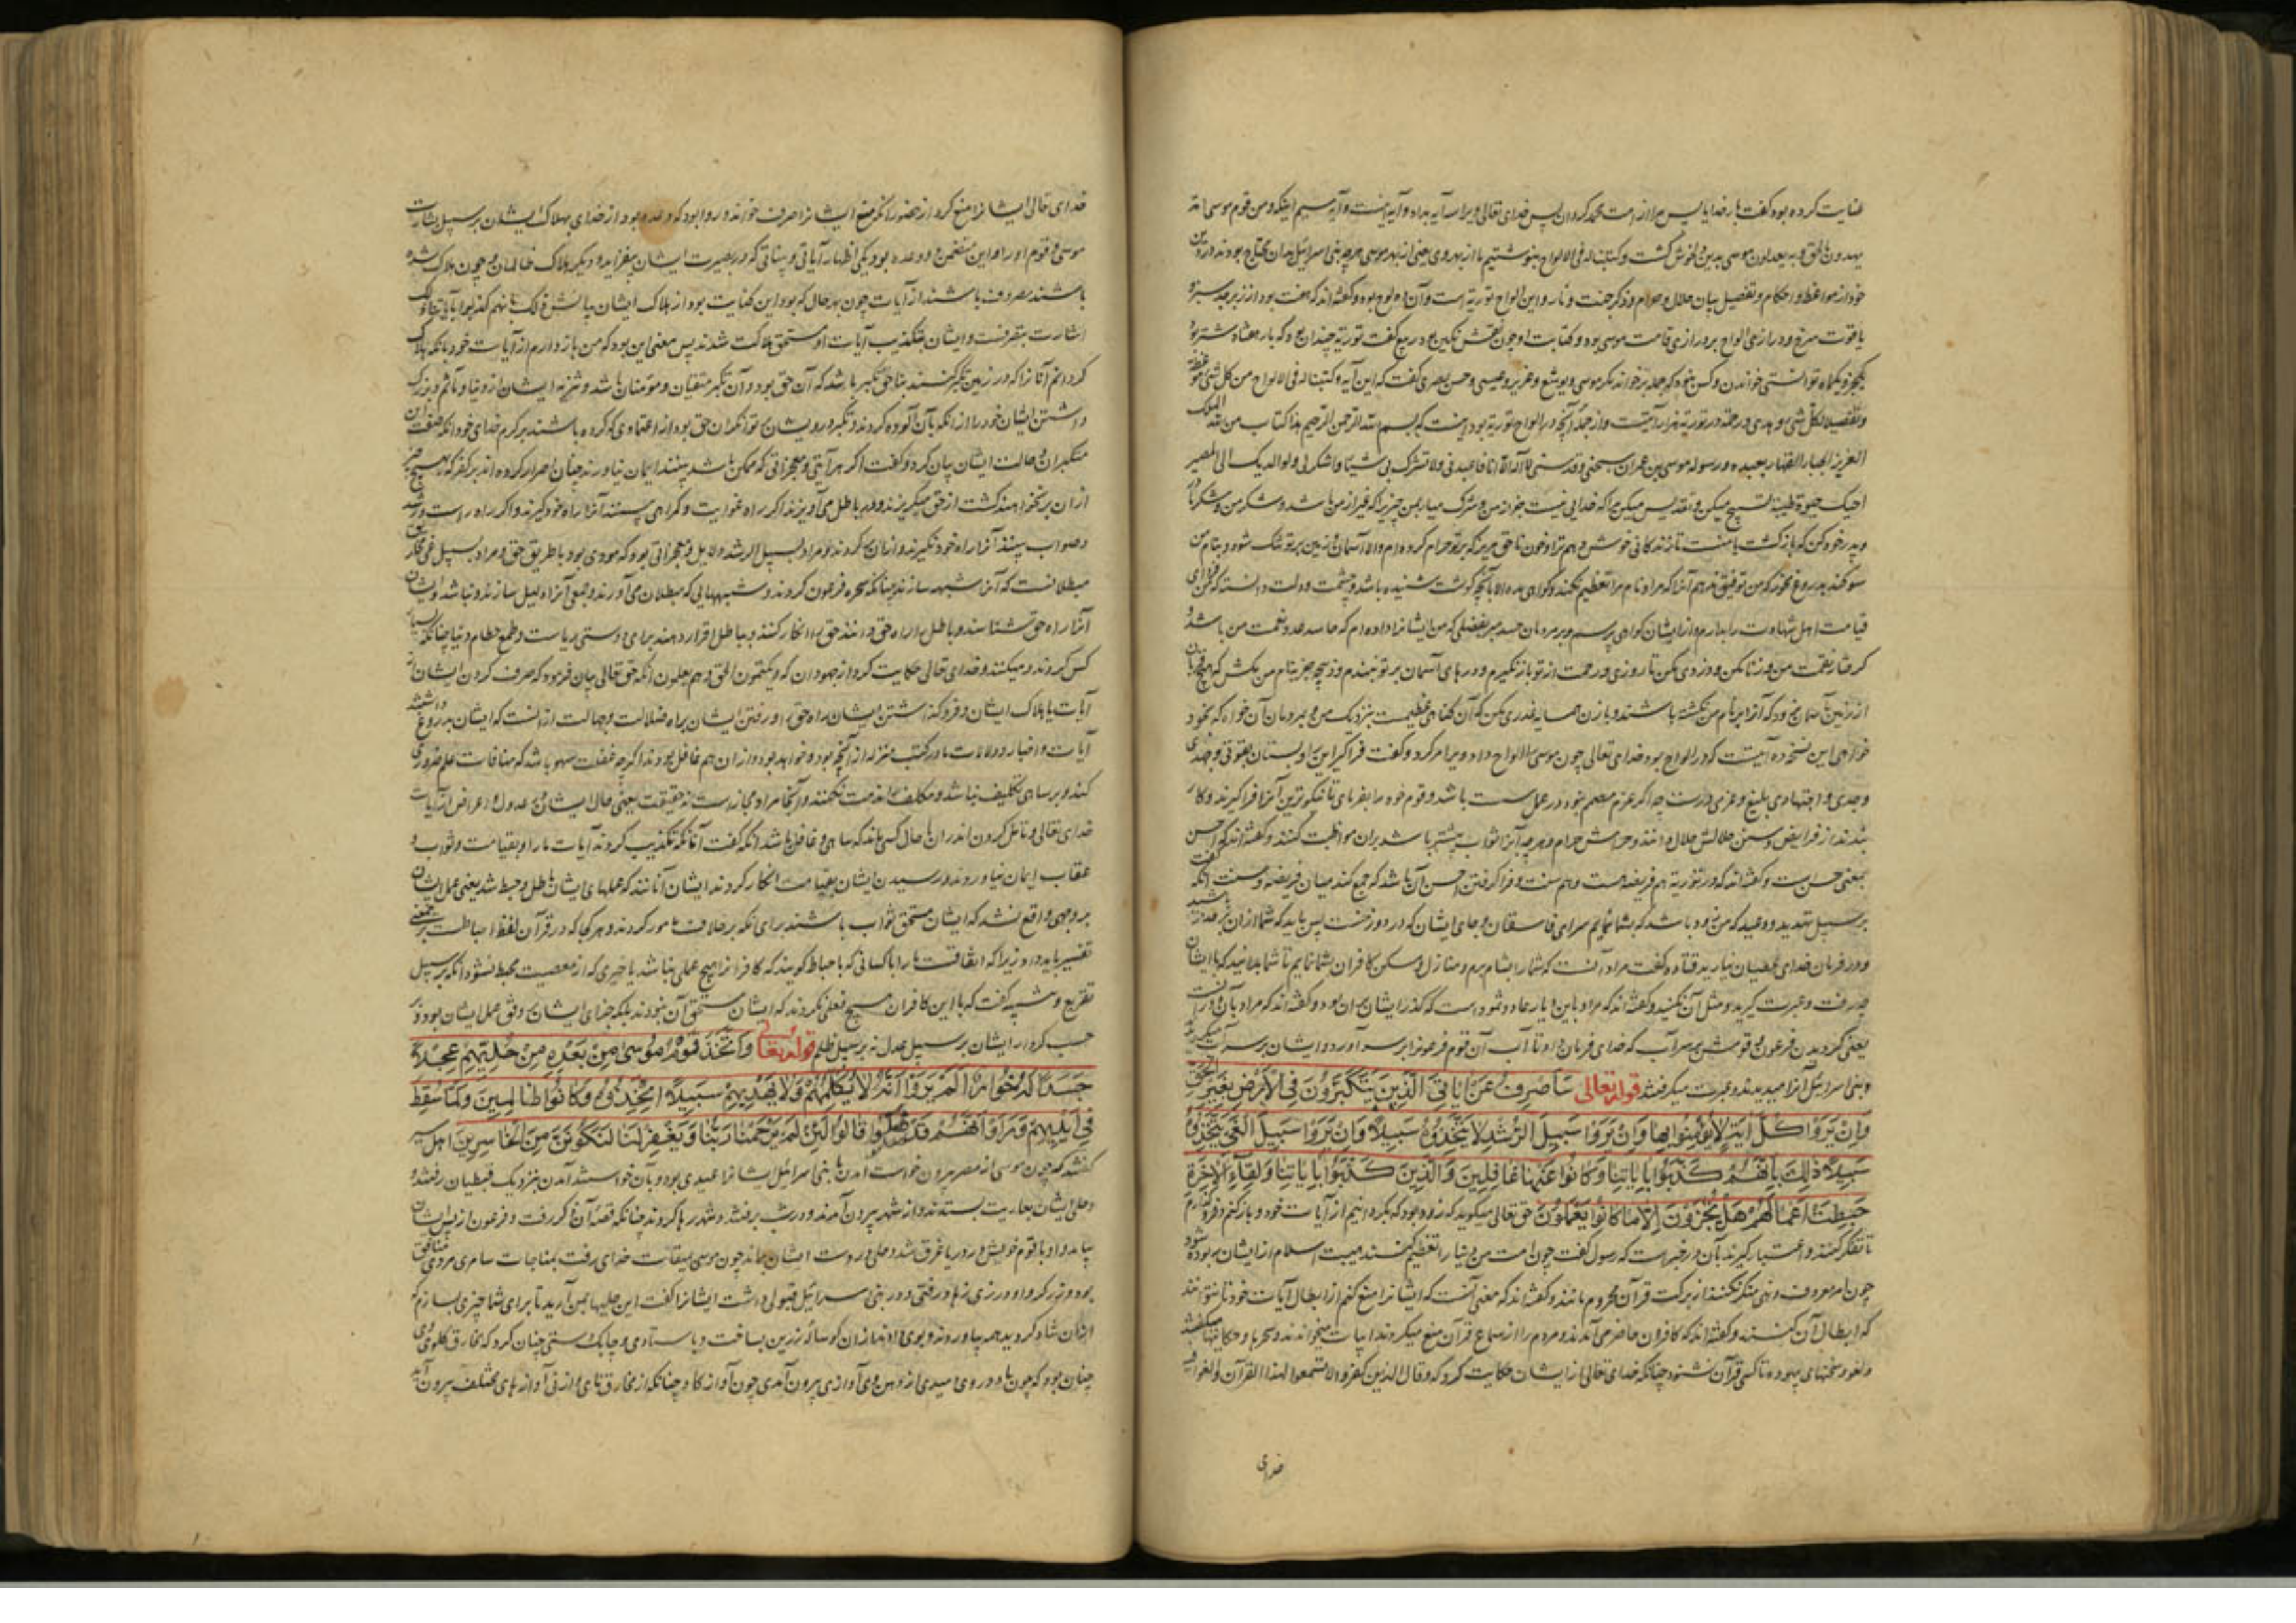 عنایت کرده بود گفت بار خدایا پس مرا از امت محمد گردان پس خدای تعالی ویرا سه آیه بداد و آیه سیم اینکه ومن قوم موسی امة
یهدون بالحق وبه یعدلون موسی بدین خوش گشت وکتبنا له فی الالواح بنوشتیم ما از بهر وی یعنی از بهر موسی هر چه بنی اسرائیل بدان محتاج بودند در دین
خود از مواعظ و احکام و تفصیل بیان حلال و حرام و ذکر جنت و نار و این الواح توریة است و آن ده لوح بود و گفته‌اند که هفت بود از زبرجد سبز و
یاقوت سرخ و درازی الواح بر درازی قامت موسی بود و کتابت او چون نقش نگین بود ربیع گفت توریة چندان بود که بار هفتاد شتر بود
توانستی خواندن و کس نبود که جمله برخواند مگر موسی و یوشع و عزیر و عیسی و حسن بصری گفت که این آیه وکتبنا له فی الالواح من کل شیء موعظة
وتفصیلا لکل شیء در توریة هزار آیتست و از جمله آنچه در الواح توریة بود اینست که بسم الله الرحمن الرحیم هذا کتاب من الله الملک
العزیز الجبار القهار لعبده ورسوله موسی بن عمران سبحنی وقدسنی لا اله الا انا فاعبدنی ولا تشرک بی شیئا واشکر لی ولوالدیک الی المصیر
احیک حیوة طیبة تسبیح میکن و تقدیس میکن مرا که خدایی نیست جز از من و شرک میار بمن چیزی که غیر از من باشد و شکر من و شکر مادر
و پدر خود کن که بازگشت با منست تا زندگانی خوش دهم ترا و خون ناحق مریز که بر تو حرام کرده‌ام والا آسمان و زمین بر تو تنگ شود و بنام من
سوگند بدروغ مخور که من توفیق ندهم آنرا که مرا و نام مرا تعظیم نکند و گواهی مده الا بآنچه گوشت شنیده باشد و چشمت و دلت دانسته که فردای
قیامت اهل شهادت را بدارم و از ایشان گواهی پرسم و بر مردمان حسد مبر بفضلی که من ایشانرا داده‌ام که حاسد عدو نعمت من باشد و
نعمت من و زنا مکن و دزدی مکن تا روزی و رحمت از تو باز نگیرم و درهای آسمان بر تو نبندم و ذبیحه جز بنام من مکش که هیچ قربان
از زمین بآسمان نرود که آنرا بر نام من نکشته باشند و با زن همسایه غدری مکن که آن گناهی عظیمست بنزدیک من و بمردمان آن خواه که بخود
خواهی این نسخه ده آیتست که در الواح بود خدای تعالی چون موسی را الواح داد ویرا امر کرد و گفت فراگیر این را و بستان بقوتی و جهدی
وجدی و اجتهادی بلیغ و عزمی درست چه اگر عزم مصمم نبود در عمل سست باشد و قوم خود را بفرمای تا نیکوترین آنرا فراگیرند و کار
بندند از فرایض و سنن حلالش حلال دانند و حرامش حرام و هر چه آنرا ثواب بیشتر باشد بران مواظبت کنند و گفته‌اند که احسن
بمعنی حسن است و گفته‌اند که در توریة هم فریضه است و هم سنت و فراگرفتن احسن آن باشد که جمع کند میان فریضه و سنت آنکه گفت
بر سبیل تهدید و وعید که من زود باشد که بشما نمایم سرای فاسقان و جای ایشان که در دوزخست پس باید که شما از ان بر حذر باشید
و در فرمان خدای عصیان نیارید قتاده گفت مراد آنست که شما را بشام برم و منازل و مسکن کافران بشما نمایم تا شما بدانید که با ایشان
چه رفت و عبرت گیرید و مثل آن نکنید و گفته‌اند که مراد باین دیار عاد و ثمود است که گذر ایشان بران بود و گفته‌اند که مراد بآن
یعنی گردیدن فرعون و قومش بر سر آب که خدای فرمان داد تا آب آن قوم فرعونرا بر سر آورد و ایشان بر سر آب میگردیدند
و بنی اسرائیل آنرا میدیدند و عبرت میگرفتند قوله تعالی سَاَصْرِفُ عَنْ اٰیَاتِیَ الَّذِینَ یَتَکَبَّرُونَ فِی الْاَرْضِ بِغَیْرِ الْحَقِّ
وَاِنْ یَرَوْا کُلَّ اٰیَةٍ لَا یُؤْمِنُوا بِهَا وَاِنْ یَرَوْا سَبِیلَ الرُّشْدِ لَا یَتَّخِذُوهُ سَبِیلًا وَاِنْ یَرَوْا سَبِیلَ الْغَیِّ یَتَّخِذُوهُ
سَبِیلًا ذٰلِکَ بِاَنَّهُمْ کَذَّبُوا بِاٰیَاتِنَا وَکَانُوا عَنْهَا غَافِلِینَ وَالَّذِینَ کَذَّبُوا بِاٰیَاتِنَا وَلِقَاءِ الْاٰخِرَةِ
حَبِطَتْ اَعْمَالُهُمْ هَلْ یُجْزَوْنَ اِلَّا مَا کَانُوا یَعْمَلُونَ حق تعالی میگوید که زود بود که بگردانیم از آیات خود و باز کنم و فرو گذارم
تا تفکر کنند و اعتبار گیرند بآن و در خبر است که رسول گفت چون امت من دنیا را تعظیم کنند هیبت اسلام از ایشان ربوده شود
چون امر معروف و نهی منکر نکنند از برکت قرآن محروم مانند و گفته‌اند که معنی آنست که ایشانرا منع کنم از ابطال آیات خود تا نتوانند
که ابطال آن کنند و گفته‌اند که کافران حاضر می‌آمدند و مردم را از سماع قرآن منع میکردند ابیات میخواندند و حکایتها میگفتند
و لغو و سخنهای بیهوده تا کسی قرآن نشنود چنانکه خدای تعالی از ایشان حکایت کرد که وقال الذین کفروا لا تسمعوا لهذا القرآن والغوا فیه
خدای
خدای تعالی ایشانرا منع کرد از حضور آنکه منع ایشانرا صرف خواند و روا بود که وعده بود از خدای بهلاک ایشان بر سبیل بشارت
موسی و قوم او را و این متضمن دو وعده بود یکی اظهار آیاتی و بیناتی که در بصیرت ایشان بیفزاید و دیگر هلاک ظالمان و چون هلاک شده
باشند مصروف باشند از آیات چون بهر حال که بود این کنایت بود از هلاک ایشان بیانش ذلک بانهم کذبوا بآیاتنا و ذلک
اشارت بصرفست و ایشان بتکذیب آیات او مستحق هلاکت شدند پس معنی این بود که من باز دارم از آیات خود بآنکه هلاک
گردانم آنانرا که در زمین تکبر کنند بناحق تکبر باشد که آن حق بود و آن تکبر متقیان و مؤمنان باشد و تنزه ایشان از دنیا و مآثم و بزرگ
داشتن ایشان خود را از آنکه بآن آلوده گردند و تکبر درویشان بر توانگران حق بود از اعتمادی که کرده باشند بر کرم خدای خود آنکه صفت این
متکبران و حالت ایشان بیان کرد و گفت اگر هر آیتی و معجزاتی که ممکن باشد ببینند ایمان نیاورند چنان اصرار کرده‌اند بر کفر که بهیچ چیز
از ان برنخواهند گشت از حق میگریزند و در باطل می‌آویزند اگر راه غوایت و گمراهی بینند آنرا راه خود گیرند و اگر راه راست و رشد
و صواب بینند آنرا راه خود نگیرند و مراد بسبیل الرشد دلایل و معجزاتی بود که مودی بود با طریق حق و مراد بسبیل غی کار
مبطلانست که آنرا شبهه سازند چنانکه سحره فرعون کردند و شبهتهایی که مبطلان می‌آورند و جمعی آنرا دلیل سازند و نباشد و ایشان
آنرا راه حق نشناسند و باطل را راه حق دانند حق را انکار کنند و بباطل اقرار دهند برای دوستی ریاست و طمع حطام دنیا چنانکه بسیار
کس کردند و میکنند و خدای تعالی حکایت کرد از جهودان که ویکتمون الحق وهم یعلمون آنکه حق تعالی بیان فرمود که صرف کردن ایشان از
آیات یا هلاک ایشان و فرو گذاشتن ایشان راه حق را و رفتن ایشان براه ضلالت و جهالت از آنست که ایشان بدروغ داشتند
آیات و اخبار و دلالات ما در کتب منزله از آنچه بود و خواهد بود و از ان هم غافل بودند اگر چه غفلت سهو باشد که منافات علم ضروری
کند و بر ساهی تکلیف نباشد و مکلف را مذمت نکنند و آنجا مراد مجاز است نه حقیقت یعنی حال ایشان در عدول و اعراض از آیات
خدای تعالی و تأمل کردن اندر آن با حال کسی ماند که ساهی و غافل باشد آنکه گفت آنانکه تکذیب کردند آیات ما را و بقیامت و ثواب و
عقاب ایمان نیاوردند و رسیدن ایشان بقیامت انکار کردند ایشان آنانند که عملهای ایشان باطل و حبط شد یعنی عمل ایشان
بر وجهی واقع نشد که ایشان مستحق ثواب باشند برای آنکه بر خلاف مامور کردند و هر کجا که در قرآن لفظ احباطست برین معنی
تفسیر باید داد زیرا که اتفاقست ما را با کسانی که باحباط گویند که کافر را هیچ عملی نباشد یا خیری که از معصیت محبط نشود آنکه بر سبیل
تقریع و تنبیه گفت که با این کافران هیچ فعلی نکردند که ایشان مستحق آن نبودند بلکه جزای ایشان بر وفق عمل ایشان بود و بر
حسب کردار ایشان بر سبیل عدل نه بر سبیل ظلم قوله تعالی وَاتَّخَذَ قَوْمُ مُوسٰی مِنْ بَعْدِهِ مِنْ حُلِیِّهِمْ عِجْلًا
جَسَدًا لَهُ خُوَارٌ اَلَمْ یَرَوْا اَنَّهُ لَا یُکَلِّمُهُمْ وَلَا یَهْدِیهِمْ سَبِیلًا اِتَّخَذُوهُ وَکَانُوا ظَالِمِینَ وَلَمَّا سُقِطَ
فِی اَیْدِیهِمْ وَرَاَوْا اَنَّهُمْ قَدْ ضَلُّوا قَالُوا لَئِنْ لَمْ یَرْحَمْنَا رَبُّنَا وَیَغْفِرْ لَنَا لَنَکُونَنَّ مِنَ الْخَاسِرِینَ اهل سیر
گفتند که چون موسی از مصر بیرون خواست آمدن با بنی اسرائیل ایشانرا عیدی بود و بآن خواستند آمدن بنزدیک قبطیان رفتند و
و حلی ایشان بعاریت بستدند و از شهر بیرون آمدند و در شب برفتند و شهر رها کردند چنانکه قصه آن ذکر رفت و فرعون از پس ایشان
بیامد و او با قوم خویش در دریا غرق شد و حلی در دست ایشان بماند چون موسی بمیقات خدای رفت بمناجات سامری مردی منافق
بود و زرگر و او در زی زهاد رفتی و در بنی اسرائیل قبولی داشت ایشانرا گفت این حلیها بمن آرید تا برای شما چیزی بسازم که
ایشان شاد گردید همه بیاوردند و بوی دادند از ان گوساله زرین بساخت و باستادی و چابک دستی چنان کرد که مخارق گلوی وی
چنان بود که چون باد در وی دمیدی از دهن وی آوازی بیرون آمدی چون آواز گاو چنانکه از مخارق نای و از نی آوازهای مختلف بیرون آید